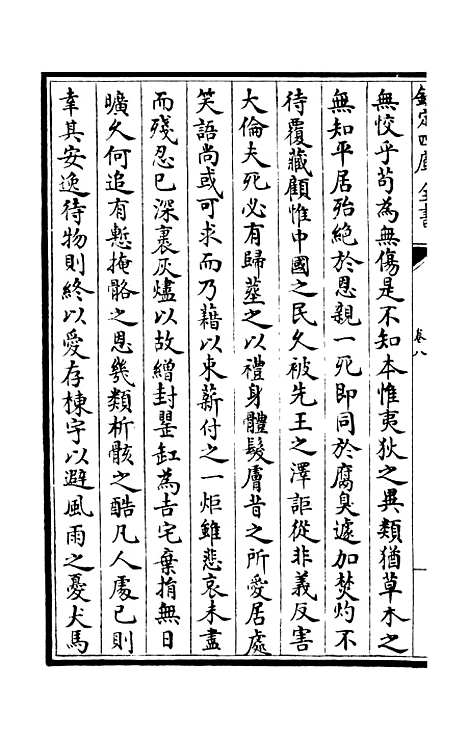 欽定四庫全書
卷八
無恔乎苟為無傷是不知本惟夷狄之異類猶草木之
無知平居殆絶於恩親一死即同於腐臭遽加焚灼不
待覆藏顧惟中國之民久被先王之澤詎從非義反害
大倫夫死必有歸塟之以禮身體髮膚昔之所愛居處
笑語尚或可求而乃藉以束薪付之一炬雖悲哀未盡
而殘忍已深裹灰燼以故繒封甖缶為吉宅棄捐無日
曠久何追有慙掩骼之恩幾類析骸之酷凡人處已則
幸其安逸待物則終以愛存棟宇以避風雨之憂犬馬